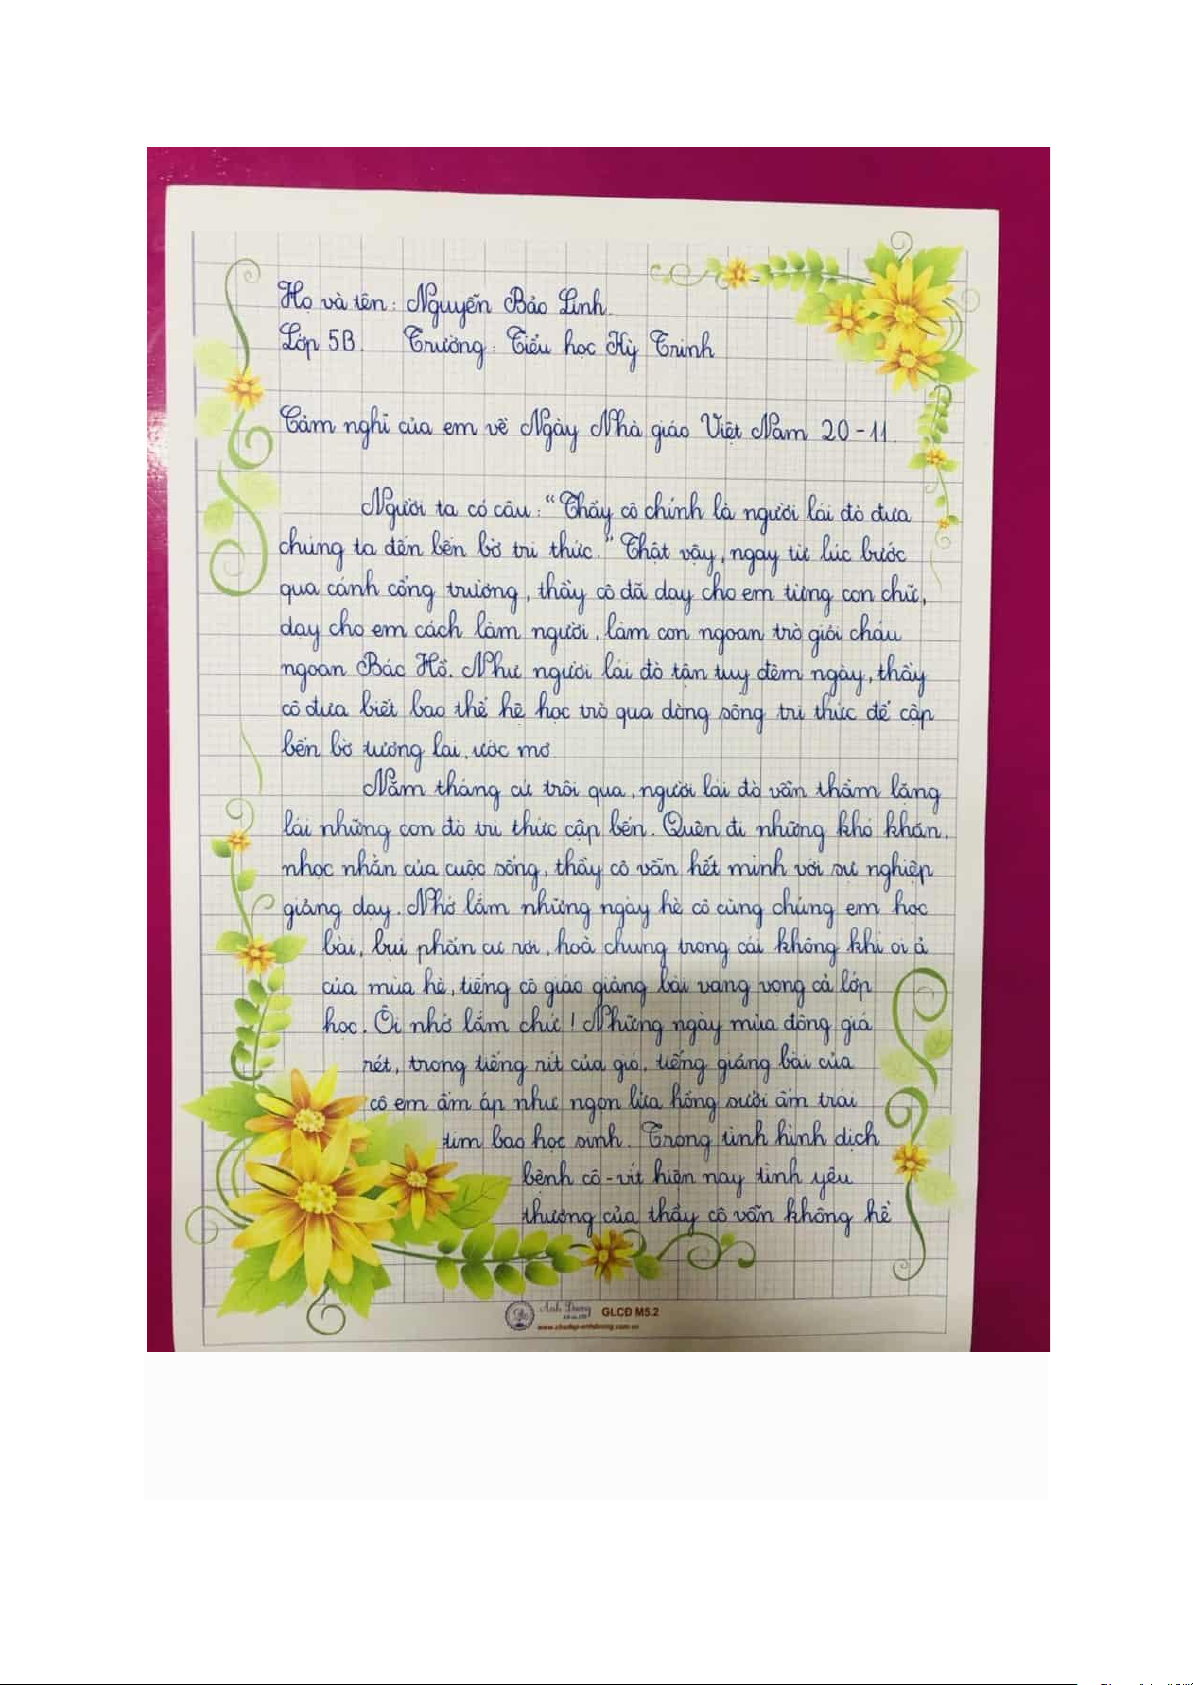 Họ và tên: Nguyễn Bảo Linh.
Lớp 5B. Trường: Tiểu học Kỳ Trinh
Cảm nghĩ của em về Ngày Nhà giáo Việt Nam 20-11.
Người ta có câu: "Thầy cô chính là người lái đò đưa
chúng ta đến bến bờ tri thức." Thật vậy, ngay từ lúc bước
qua cánh cổng trường, thầy cô đã dạy cho em từng con chữ,
dạy cho em cách làm người, làm con ngoan trò giỏi cháu
ngoan Bác Hồ. Như người lái đò tận tuỵ đêm ngày, thầy
cô đưa biết bao thế hệ học trò qua dòng sông tri thức để cập
bến bờ tương lai, ước mơ.
Năm tháng cứ trôi qua, người lái đò vẫn thầm lặng
lái những con đò tri thức cập bến. Quên đi những khó khăn,
nhọc nhằn của cuộc sống, thầy cô vẫn hết mình với sự nghiệp
giảng dạy. Nhớ lắm những ngày hè cô cùng chúng em học
bài, bụi phấn cứ rơi, hoà chung trong cái không khí oi ả
của mùa hè, tiếng cô giáo giảng bài vang vọng cả lớp
học. Ôi nhớ lắm chứ! Những ngày mùa đông giá
rét, trong tiếng rít của gió, tiếng giảng bài của
cô em ấm áp như ngọn lửa hồng sưởi ấm trái
tim bao học sinh. Trong tình hình dịch
bệnh cô-vít hiện nay tình yêu
thương của thầy cô vẫn không hề
Ánh Dương
GLCD M5.2